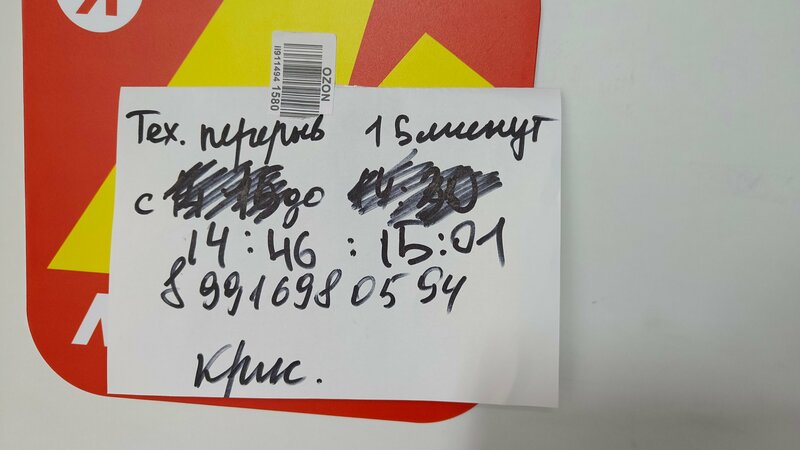 К
OZON
ii911494 1580
Тех. перерыв 15 минут
с 14:15 до 14:30
14:46 : 15:01
8 991698 0594
Крис.